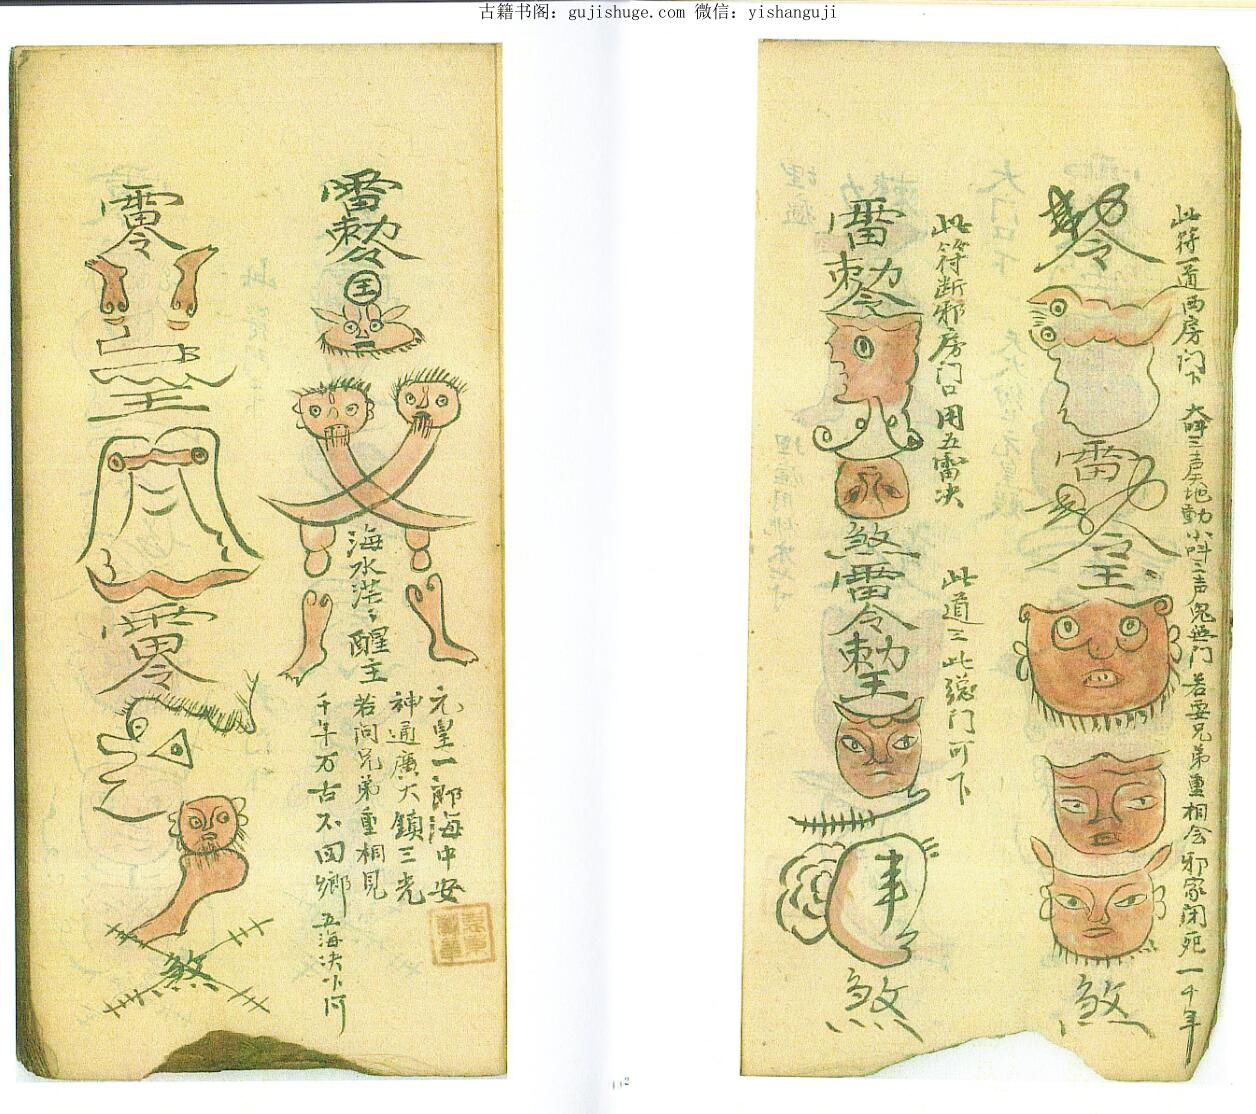 古籍书阁：gujishuge.com 微信：yishanguji
此符一道西房门下 大叫三声天地動小叫三声鬼無门 若要兄弟重相会 邪家闭死一千年
勅令
雷
令
王
煞
此符断邪房门口用五雷决
此道三 此符门可下
雷
勅令
煞
雷
令
勅
王
煞
雷
勅令
王
海水茫々醒主
元皇一郎海中安
神通廣大鎖三光
若问兄弟重相見
千年万古不回鄉 五海决
雷
令
王
雷
令
煞
112